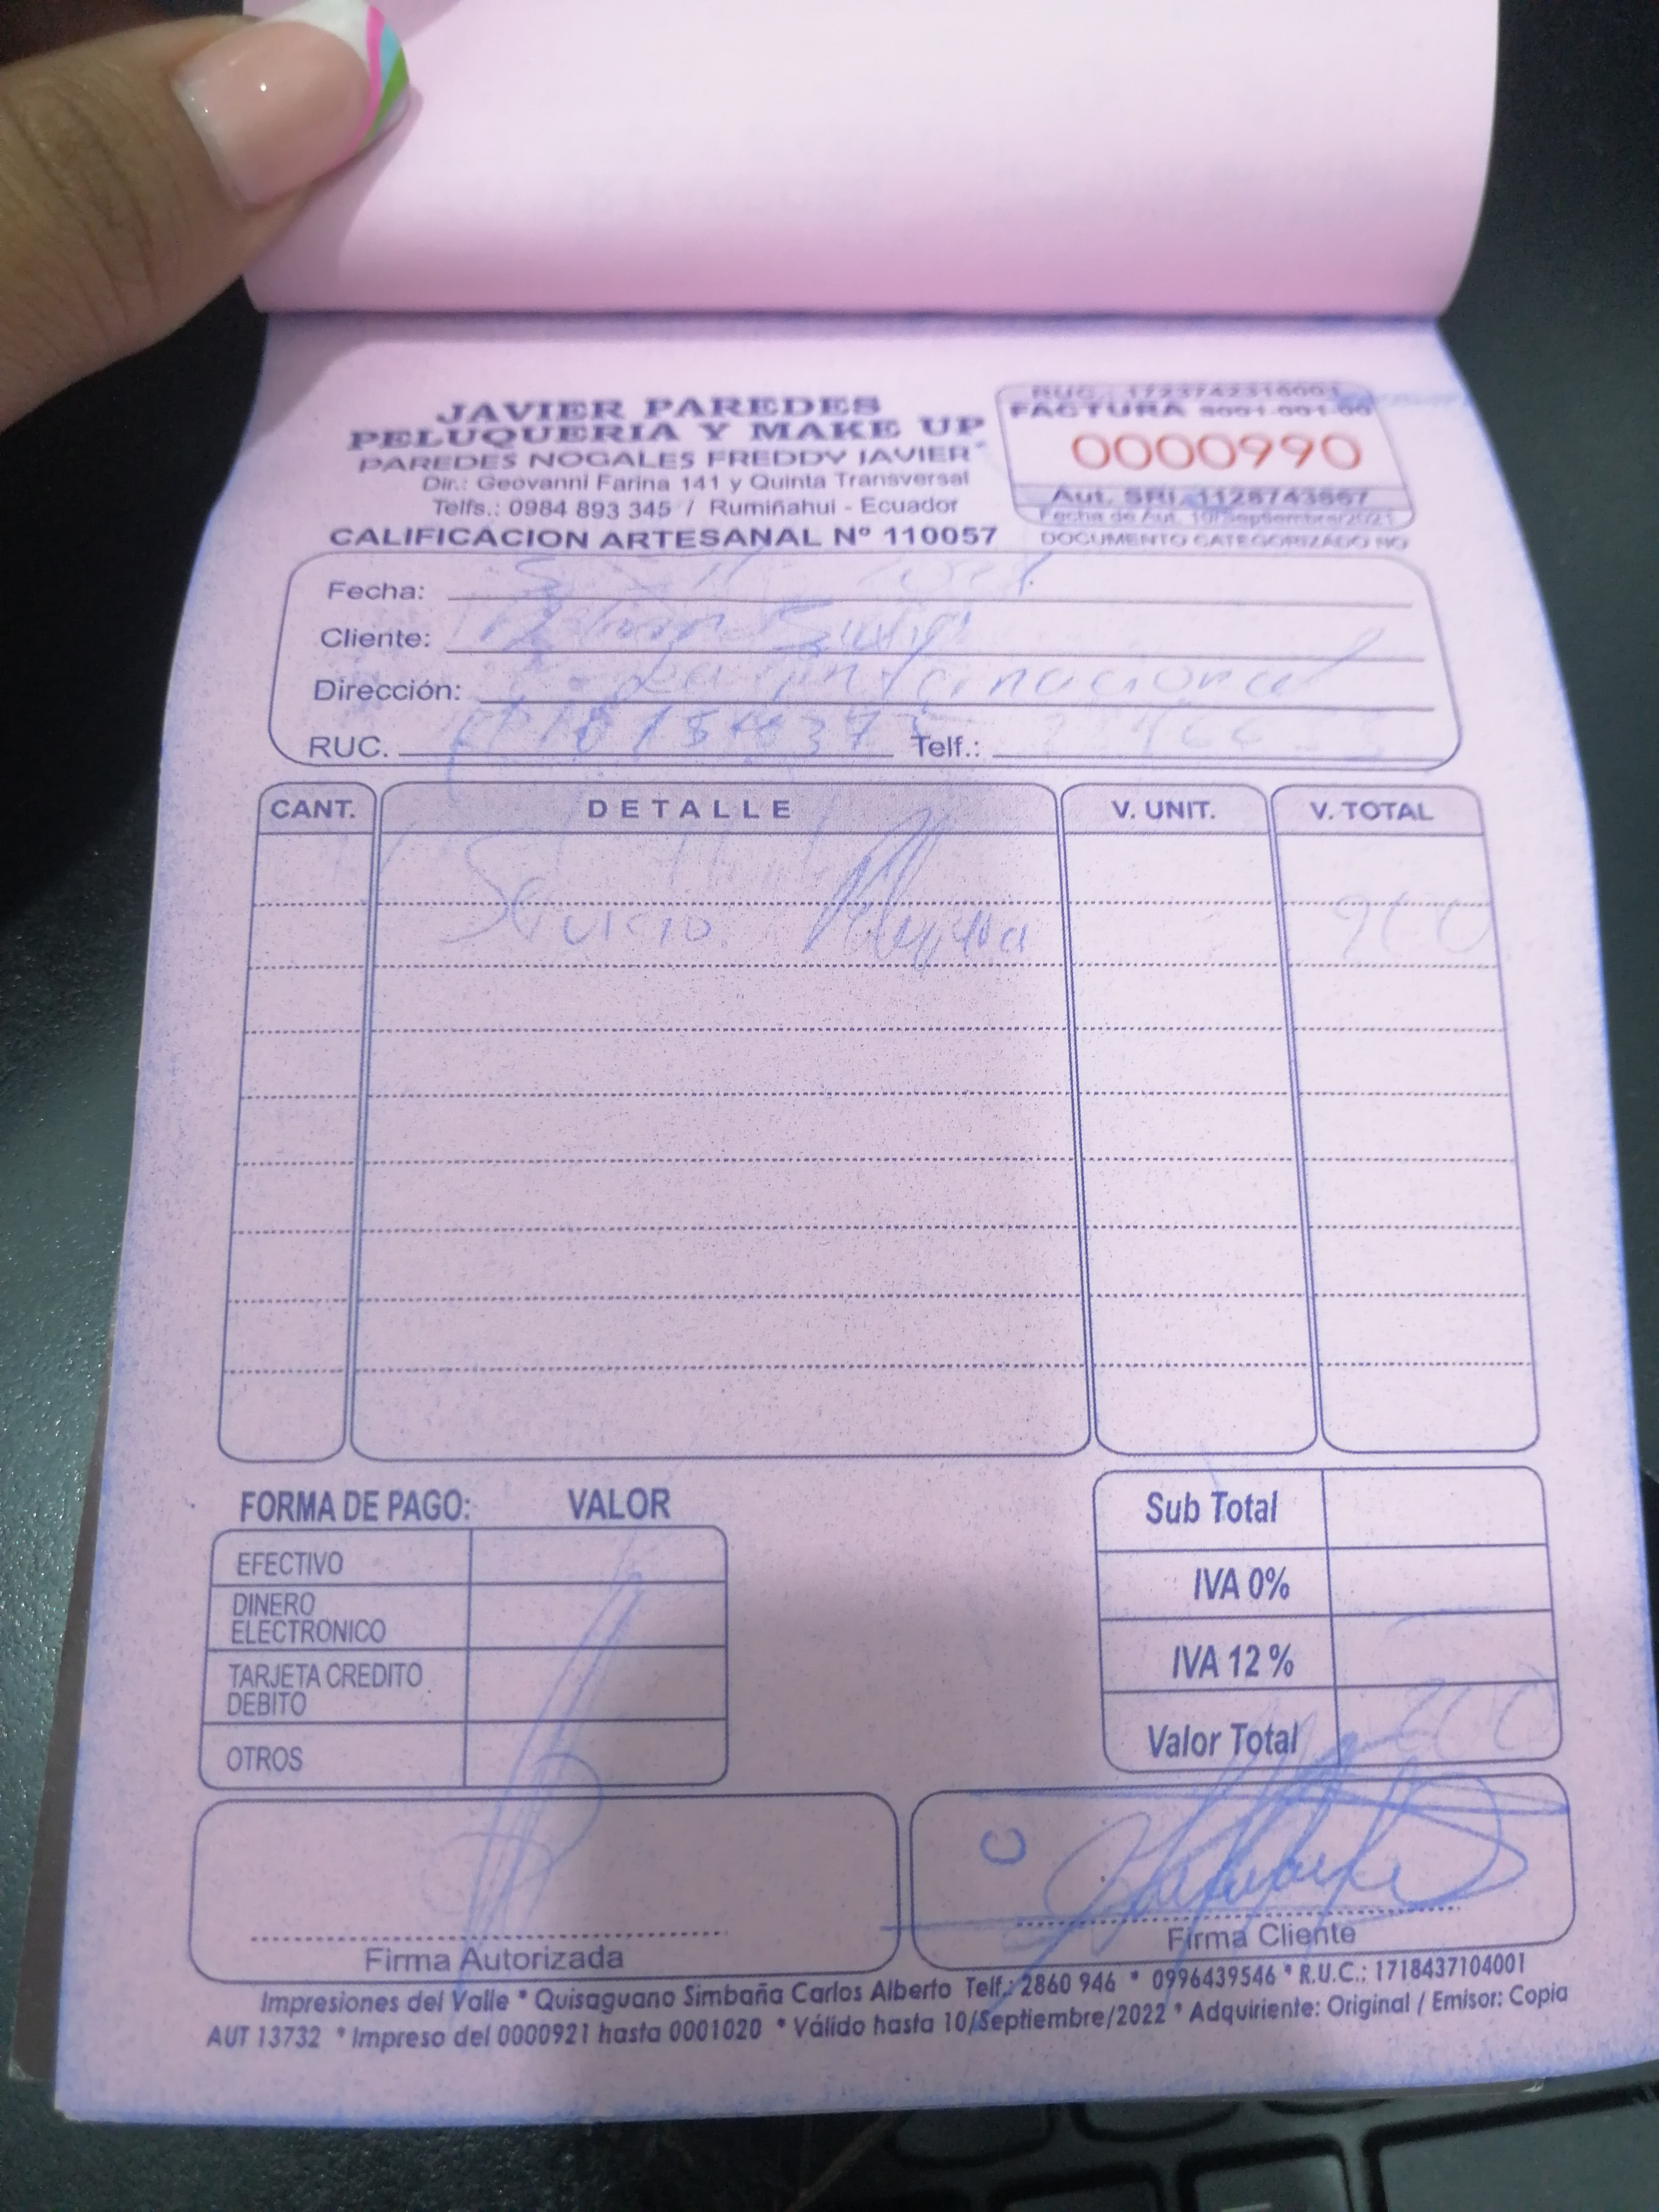 JAVIER PAREDES
PELUQUERIA Y MAKE UP
PAREDES NOGALES FREDDY JAVIER
Dir.: Geovanni Farina 141 y Quinta Transversal
Telfs.: 0984 893 345 / Rumiñahui - Ecuador
CALIFICACION ARTESANAL Nº 110057
RUC.: 1723742316001
FACTURA S001-001-00
0000990
Aut. SRI. 1128743667
Fecha de Aut. 10/Septiembre/2021
DOCUMENTO CATEGORIZADO NO
Fecha:
Cliente:
Dirección: internacional
RUC. Telf.:
CANT. DETALLE V. UNIT. V. TOTAL
Servicio
FORMA DE PAGO: VALOR
EFECTIVO
DINERO ELECTRONICO
TARJETA CREDITO DEBITO
OTROS
Sub Total
IVA 0%
IVA 12 %
Valor Total
Firma Autorizada
Firma Cliente
Impresiones del Valle * Quisaguano Simbaña Carlos Alberto Telf.: 2860 946 * 0996439546 * R.U.C.: 1718437104001
AUT 13732 * Impreso del 0000921 hasta 0001020 * Válido hasta 10/Septiembre/2022 * Adquiriente: Original / Emisor: Copia